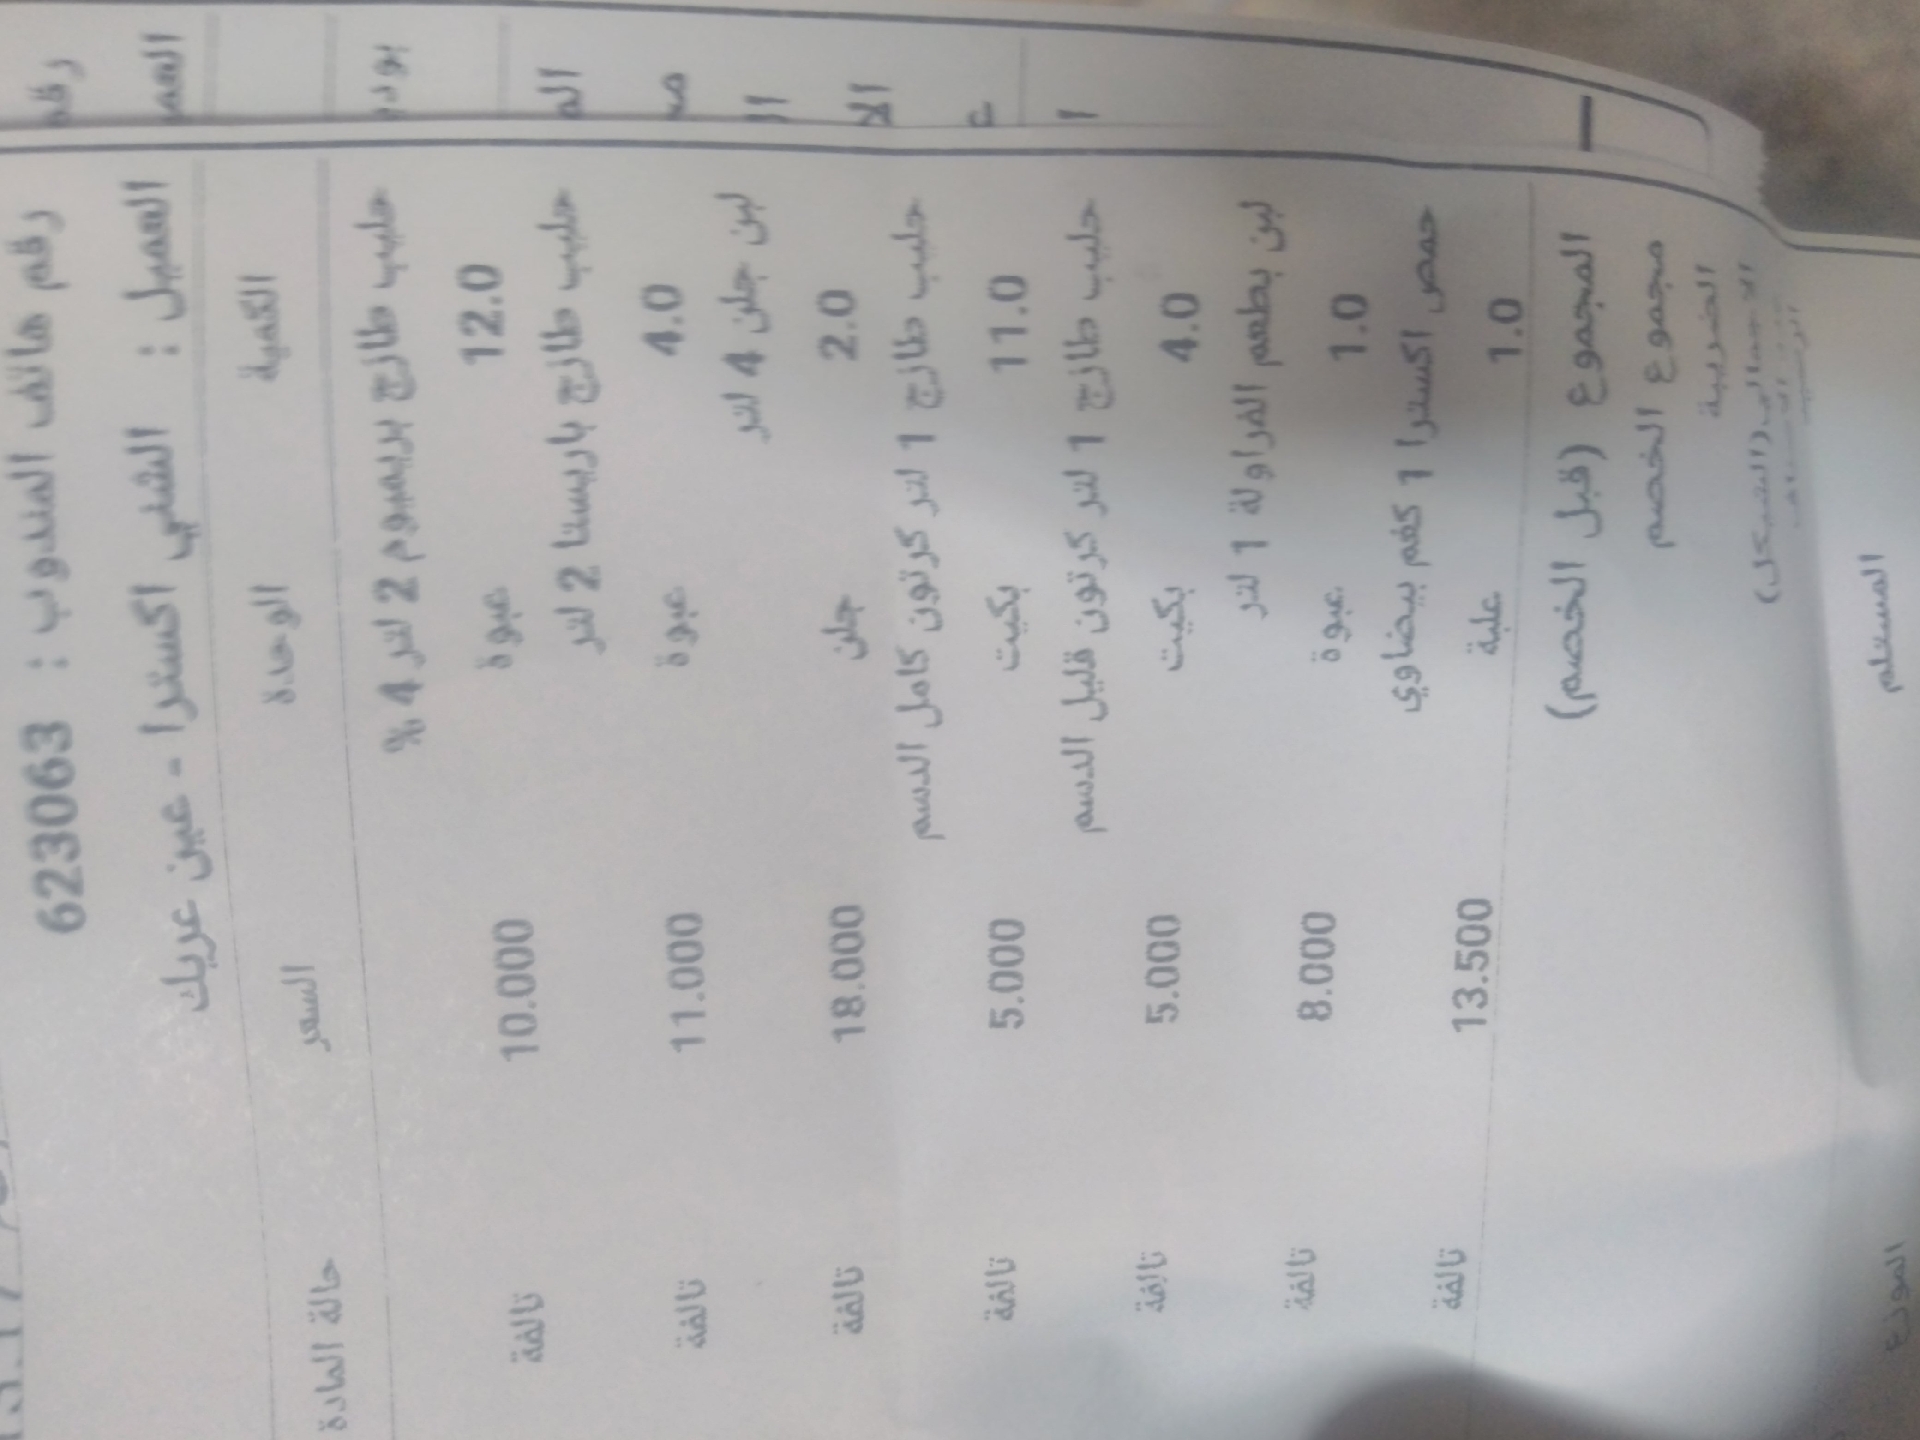 رقم هاتف المندوب : 623063
العميل : الشني اكسترا - عين عريك
الكمية الوحدة السعر حالة المادة
حليب طازج بريميوم 2 لتر 4 %
12.0 عبوة 10.000 تالفة
حليب طازج باريستا 2 لتر
4.0 عبوة 11.000 تالفة
لبن جلن 4 لتر
2.0 جلن 18.000 تالفة
حليب طازج 1 لتر كرتون كامل الدسم
11.0 بكيت 5.000 تالفة
حليب طازج 1 لتر كرتون قليل الدسم
4.0 بكيت 5.000 تالفة
لبن بطعم الفراولة 1 لتر
1.0 عبوة 8.000 تالفة
حمص اكسترا 1 كغم بيضاوي
1.0 علبة 13.500 تالفة
المجموع (قبل الخصم)
مجموع الخصم
الضريبة
المستلم الموزع
رقم